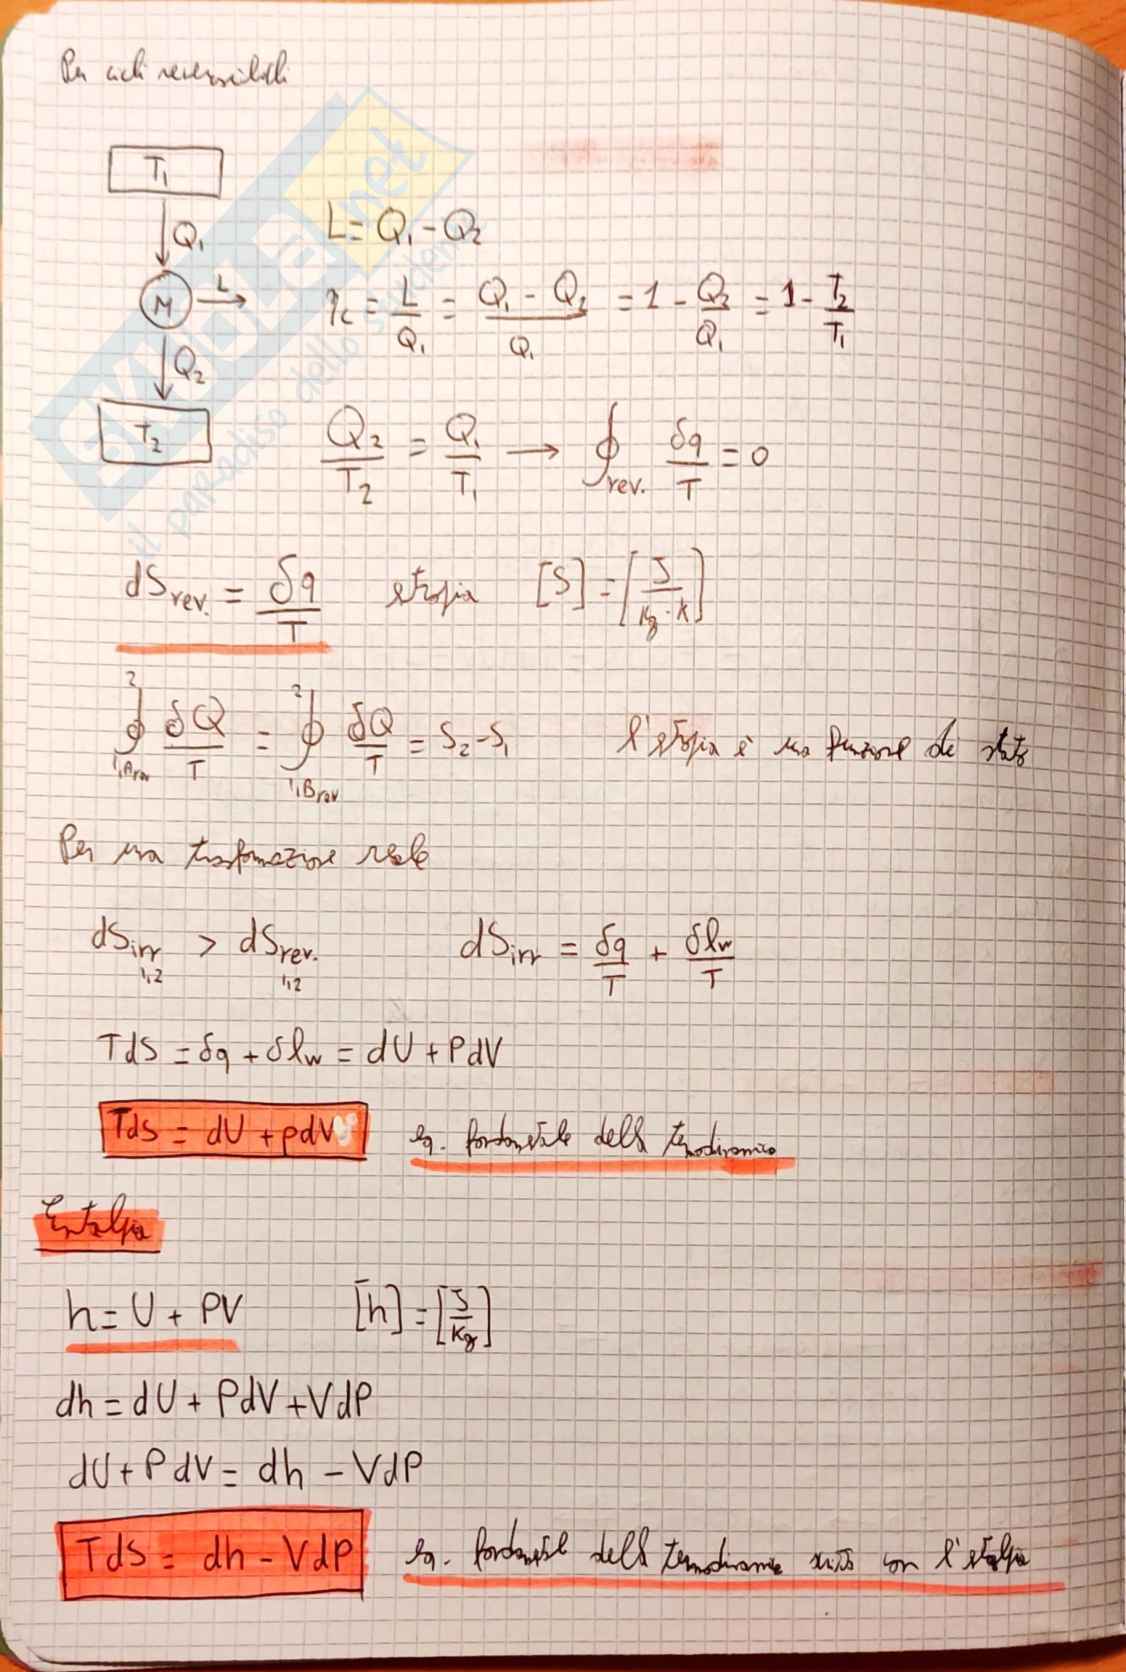 Per cicli reversibili
T₁
Q₁
L = Q₁ - Q₂
M
L
ηc = L/Q₁ = (Q₁ - Q₂)/Q₁ = 1 - Q₂/Q₁ = 1 - T₂/T₁
Q₂
T₂
Q₂/T₂ = Q₁/T₁ → ∮rev. δq/T = 0
dSrev. = δq/T etropia [S] = [J/(Kg·K)]
∮²₁,A rev δQ/T = ∮²₁,B rev δQ/T = S₂ - S₁ l'etropia è una funzione di stato
Per una trasformazione reale
dSirr 1,2 > dSrev. 1,2 dSirr = δq/T + δlw/T
TdS = δq + δlw = dU + PdV
TdS = dU + pdV eq. fondamentale della termodinamica
Entalpia
h = U + PV [h] = [J/Kg]
dh = dU + PdV + VdP
dU + PdV = dh - VdP
TdS = dh - VdP eq. fondamentale della termodinamica scritta con l'etalpia
skuola.net
il paradiso dello studente